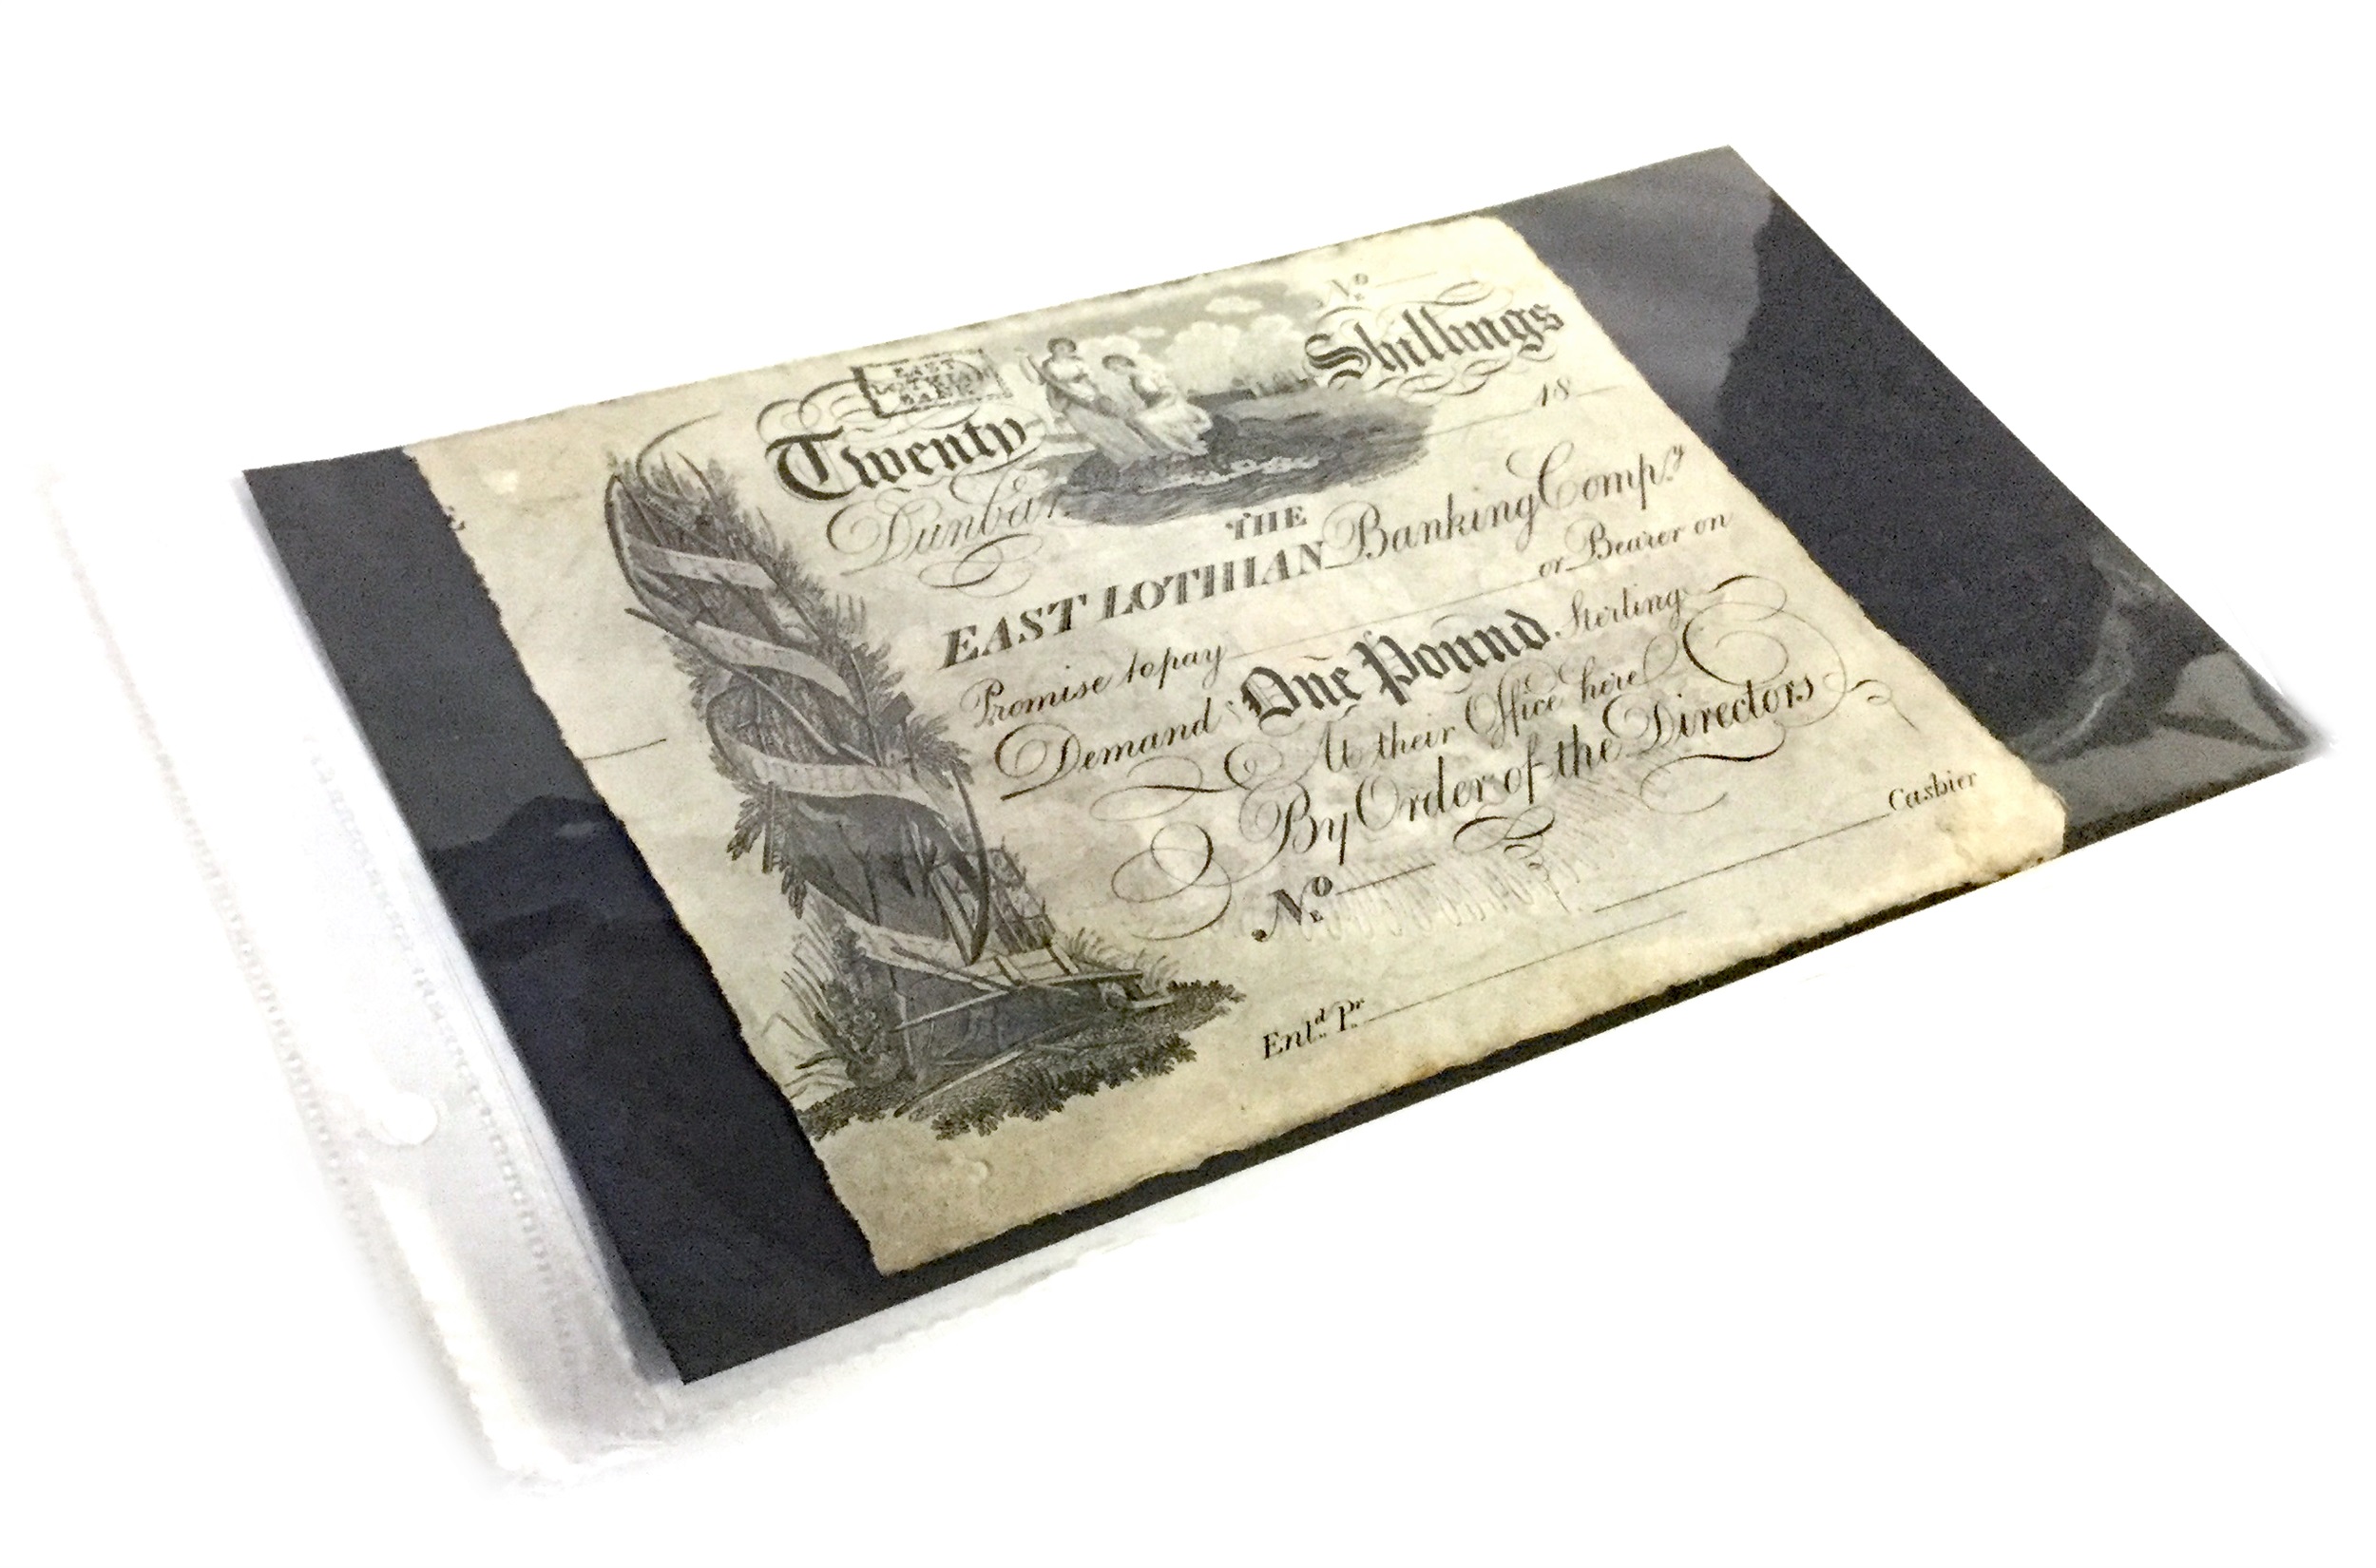 No
EAST
LOTHIAN
BANK
Twenty Shillings
Dunbar 18
THE
EAST LOTHIAN Banking Compy
Promise to pay or Bearer on
Demand One Pound Sterling
At their Office here
By Order of the Directors
No
Cashier
Entd. Pr.